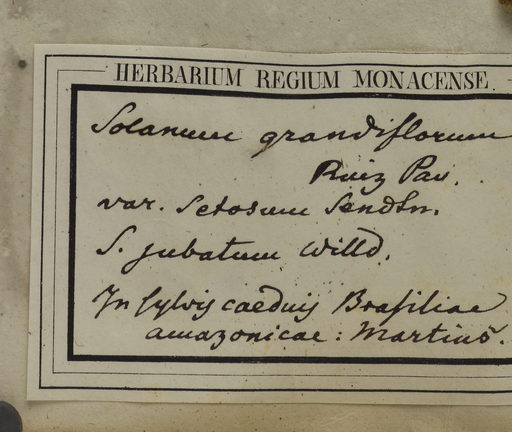 HERBARIUM REGIUM MONACENSE.
Solanum grandiflorum
Ruiz Pav.
var. setosum Sendtn.
S. jubatum Willd.
In sylvis caeduis Brasiliae
amazonicae: Martius.